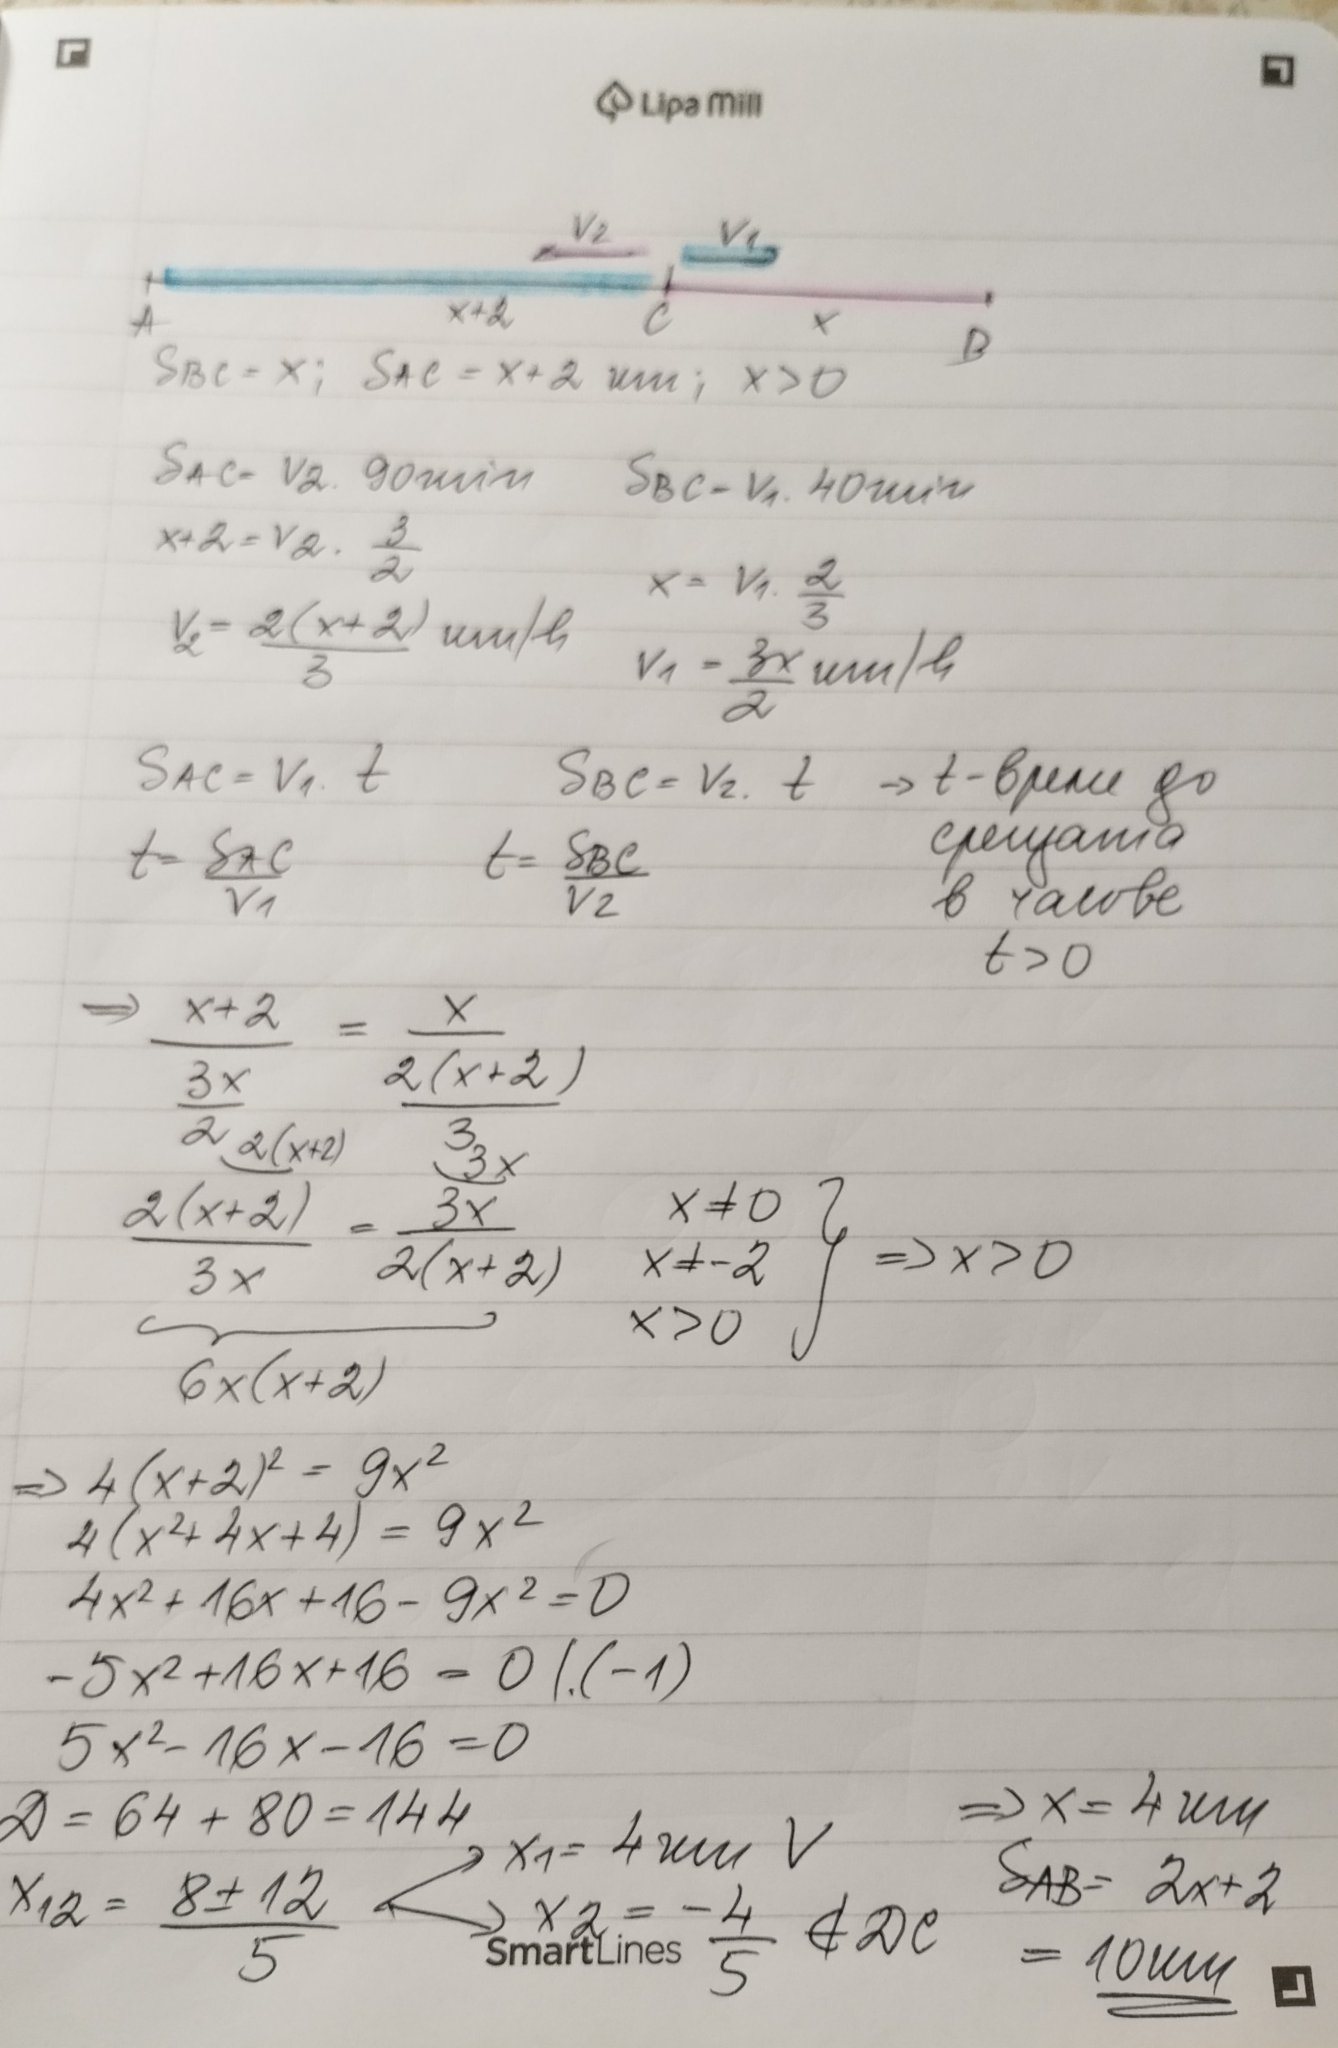 Lipa Mill
V2 V1
A x+2 C x B
SBC = x; SAC = x+2 km; x>0
SAC = V2. 90min SBC = V1. 40min
x+2 = V2. 3/2 x = V1. 2/3
V2 = 2(x+2)/3 km/h V1 = 3x/2 km/h
SAC = V1. t SBC = V2. t → t-време до
срещата
t = SAC/V1 t = SBC/V2 в часове
t>0
=> (x+2)/(3x/2) = x/(2(x+2)/3)
2(x+2) 3x
2(x+2)/3x = 3x/2(x+2) x≠0
x≠-2 } => x>0
x>0
6x(x+2)
=> 4(x+2)² = 9x²
4(x²+4x+4) = 9x²
4x²+16x+16-9x²=0
-5x²+16x+16 = 0 |.(-1)
5x²-16x-16=0
D = 64+80=144
x12 = (8±12)/5 x1= 4km V
x2 = -4/5 ∉ DC
=> x=4km
SAB= 2x+2
= 10km
SmartLines